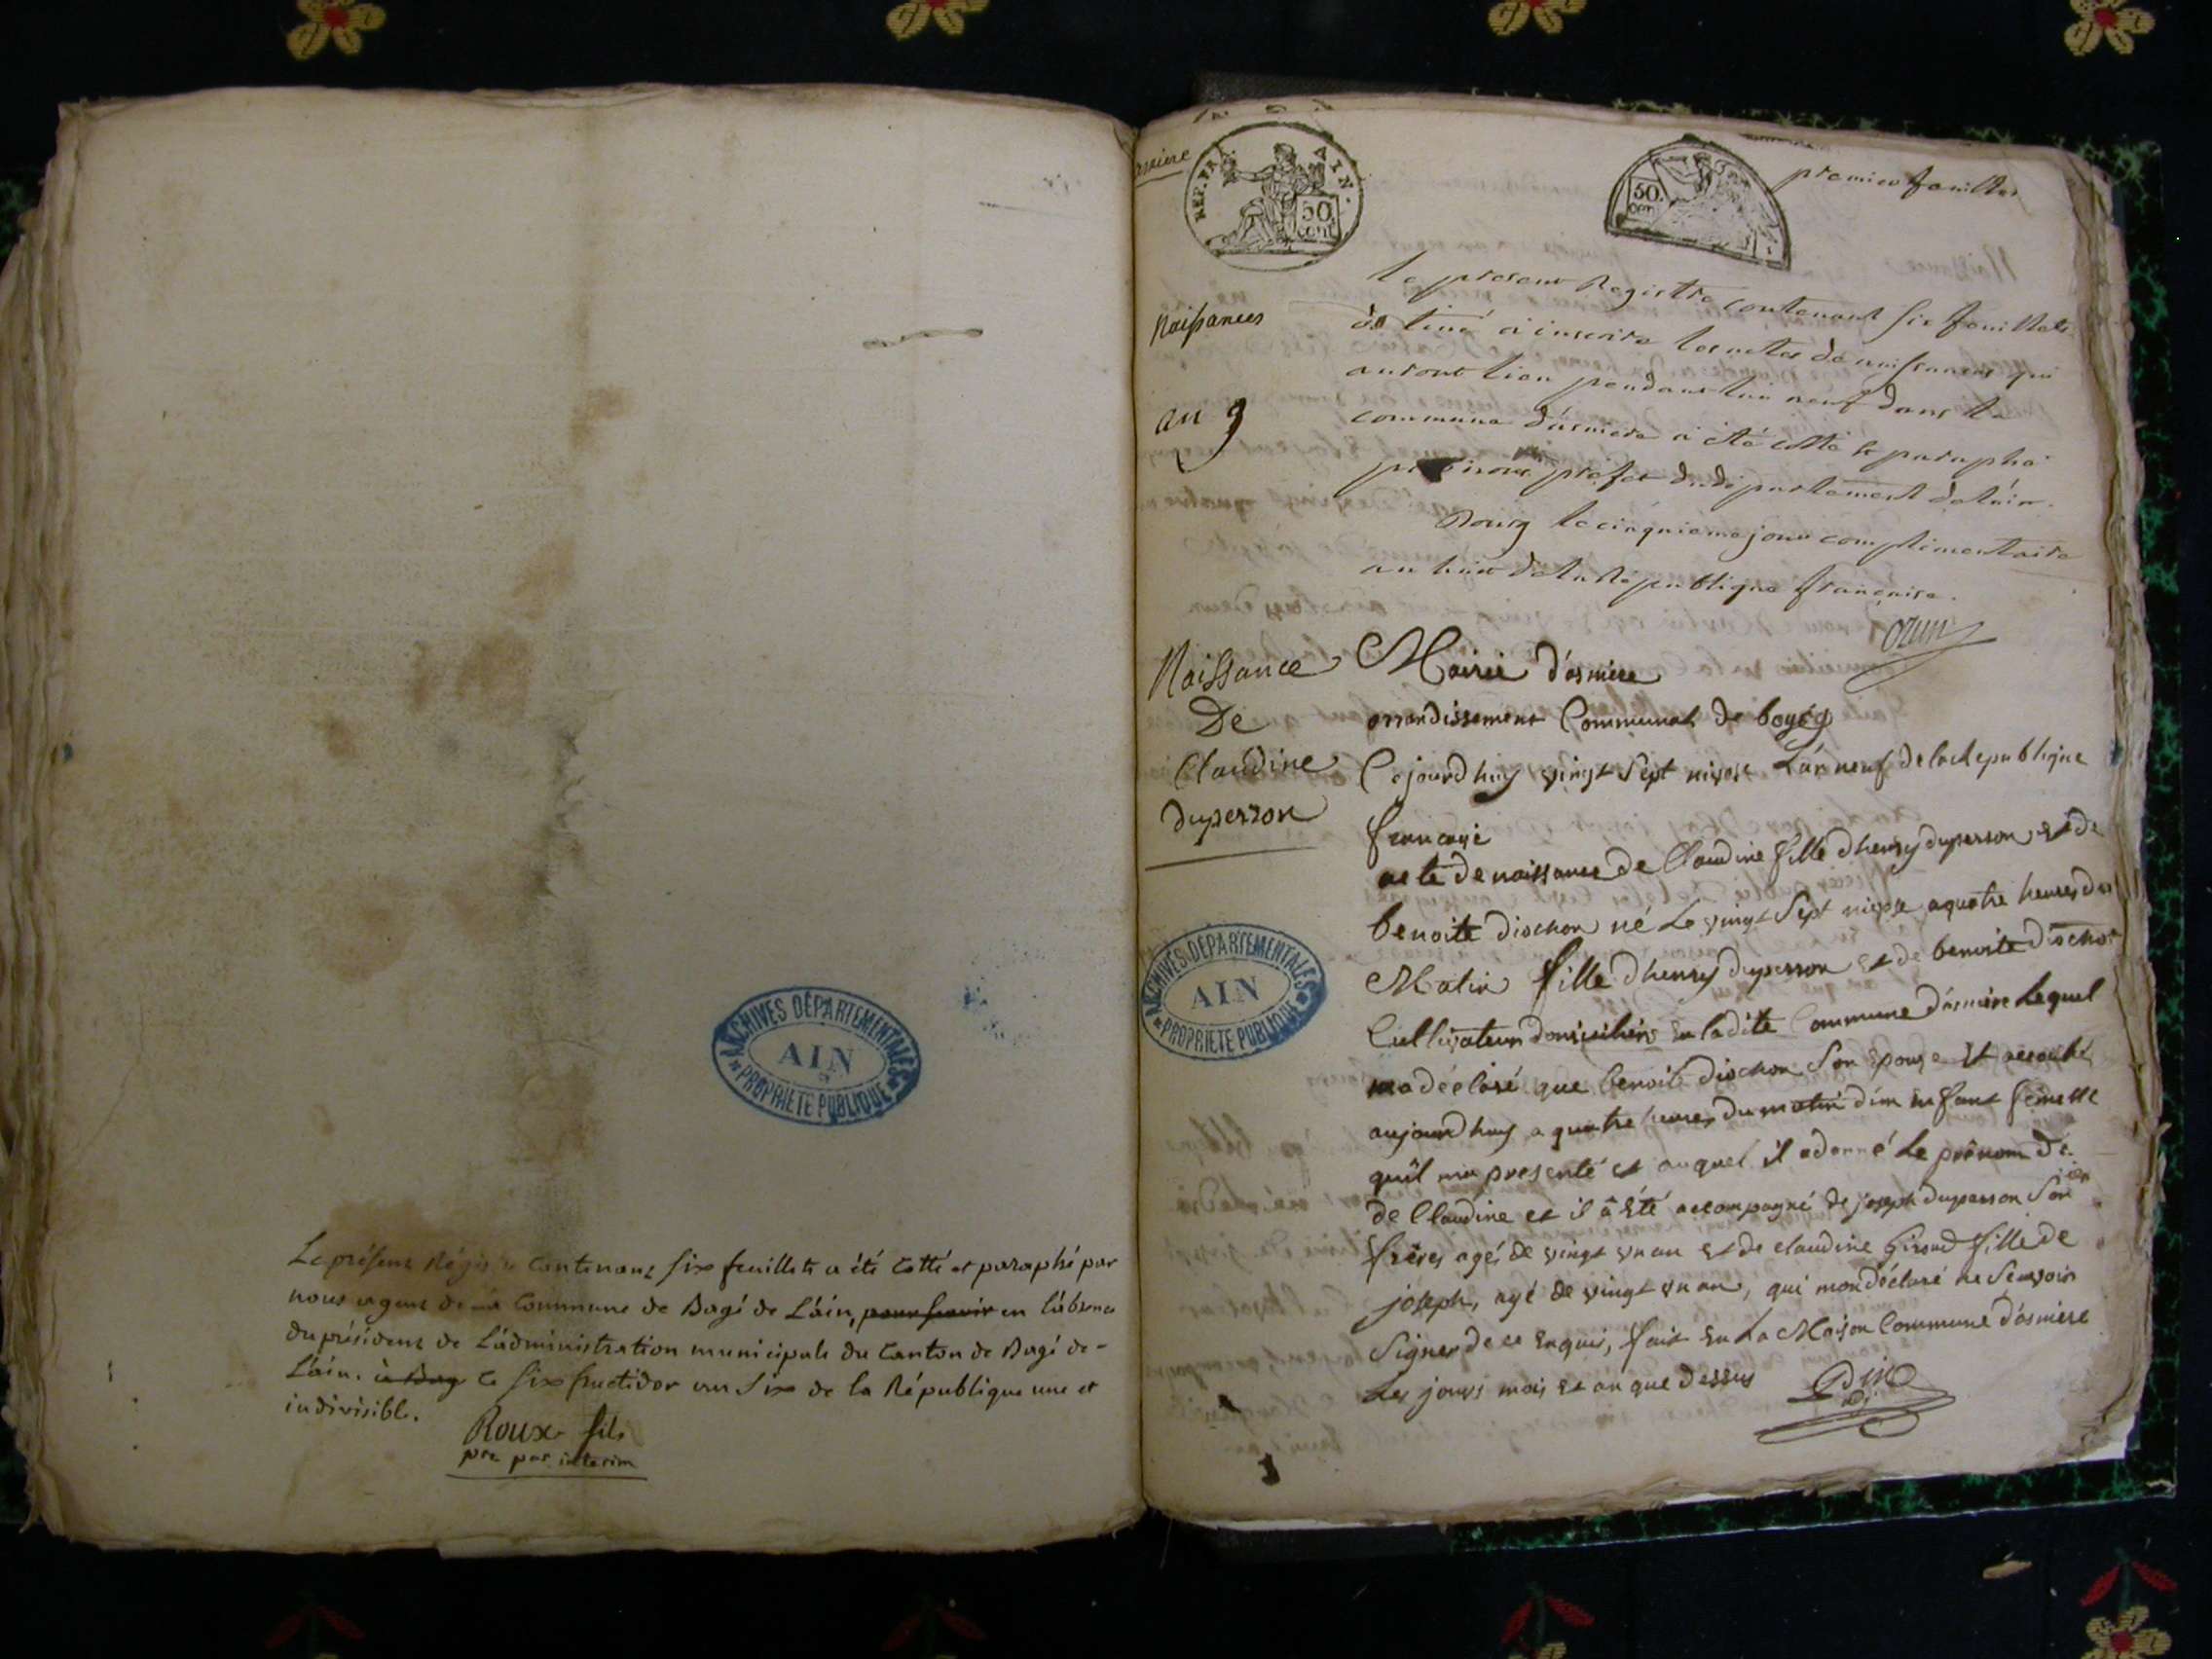 Le présent Régistre Contenant six feuillets a été Cotté et paraphé par
nous agent de la Commune de Bagé de L'ain, pour servir en l'absence
du président de L'administration municipale du Canton de Bagé de-
L'ain. à Bag ce six fructidor an Six de la République une et
indivisible.
Roux fils
pre par interim
ARCHIVES DÉPARTEMENTALES
AIN
PROPRIÉTÉ PUBLIQUE
asniere
REP. FRA.
AIN.
50.
cent
50.
cen
premier feuillet
Naissances
an 9
le present Registre contenant six feuillets
destiné a inscrire les actes de naissances qui
auront lieu pendant l'an neuf dans la
commune d'asniere a été cotté & paraphé
par nous préfet du département de l'ain.
Bourg le cinquieme jour complimentaire
an huit de la République française.
ozun
Naissance
De
Claudine
duperron
Mairie d'asniere
arrondissement Communal de
Cejourdhuy vingt Sept nivose L'an neuf de la Republique
francaise
acte de naissance de Claudine fille d henry duperron et de
benoite diochon né Le vingt Sept nivose a quatre heures du
Matin fille d henry duperron et de benoite diochon
Cultivateur domiciliers en ladite Commune d'asniere Lequel
ma déclaré que benoite diochon Son Epouse Et accouché
aujourd huy a quatre heures du matin d'un enfant femelle
qu'il ma presenté et auquel il a donné Le prênom de
de Claudine et il â Eté accompagné de joseph duperron Son
freres agé de vingt un an et de claudine Giroud fille de
joseph, agé de vingt un an, qui mon déclaré ne Scavoir
Signer de ce Enquis, fait En La Maison Commune d'asniere
Les jours mois et an que dessus
adj
ARCHIVES DÉPARTEMENTALES
AIN
PROPRIÉTÉ PUBLIQUE